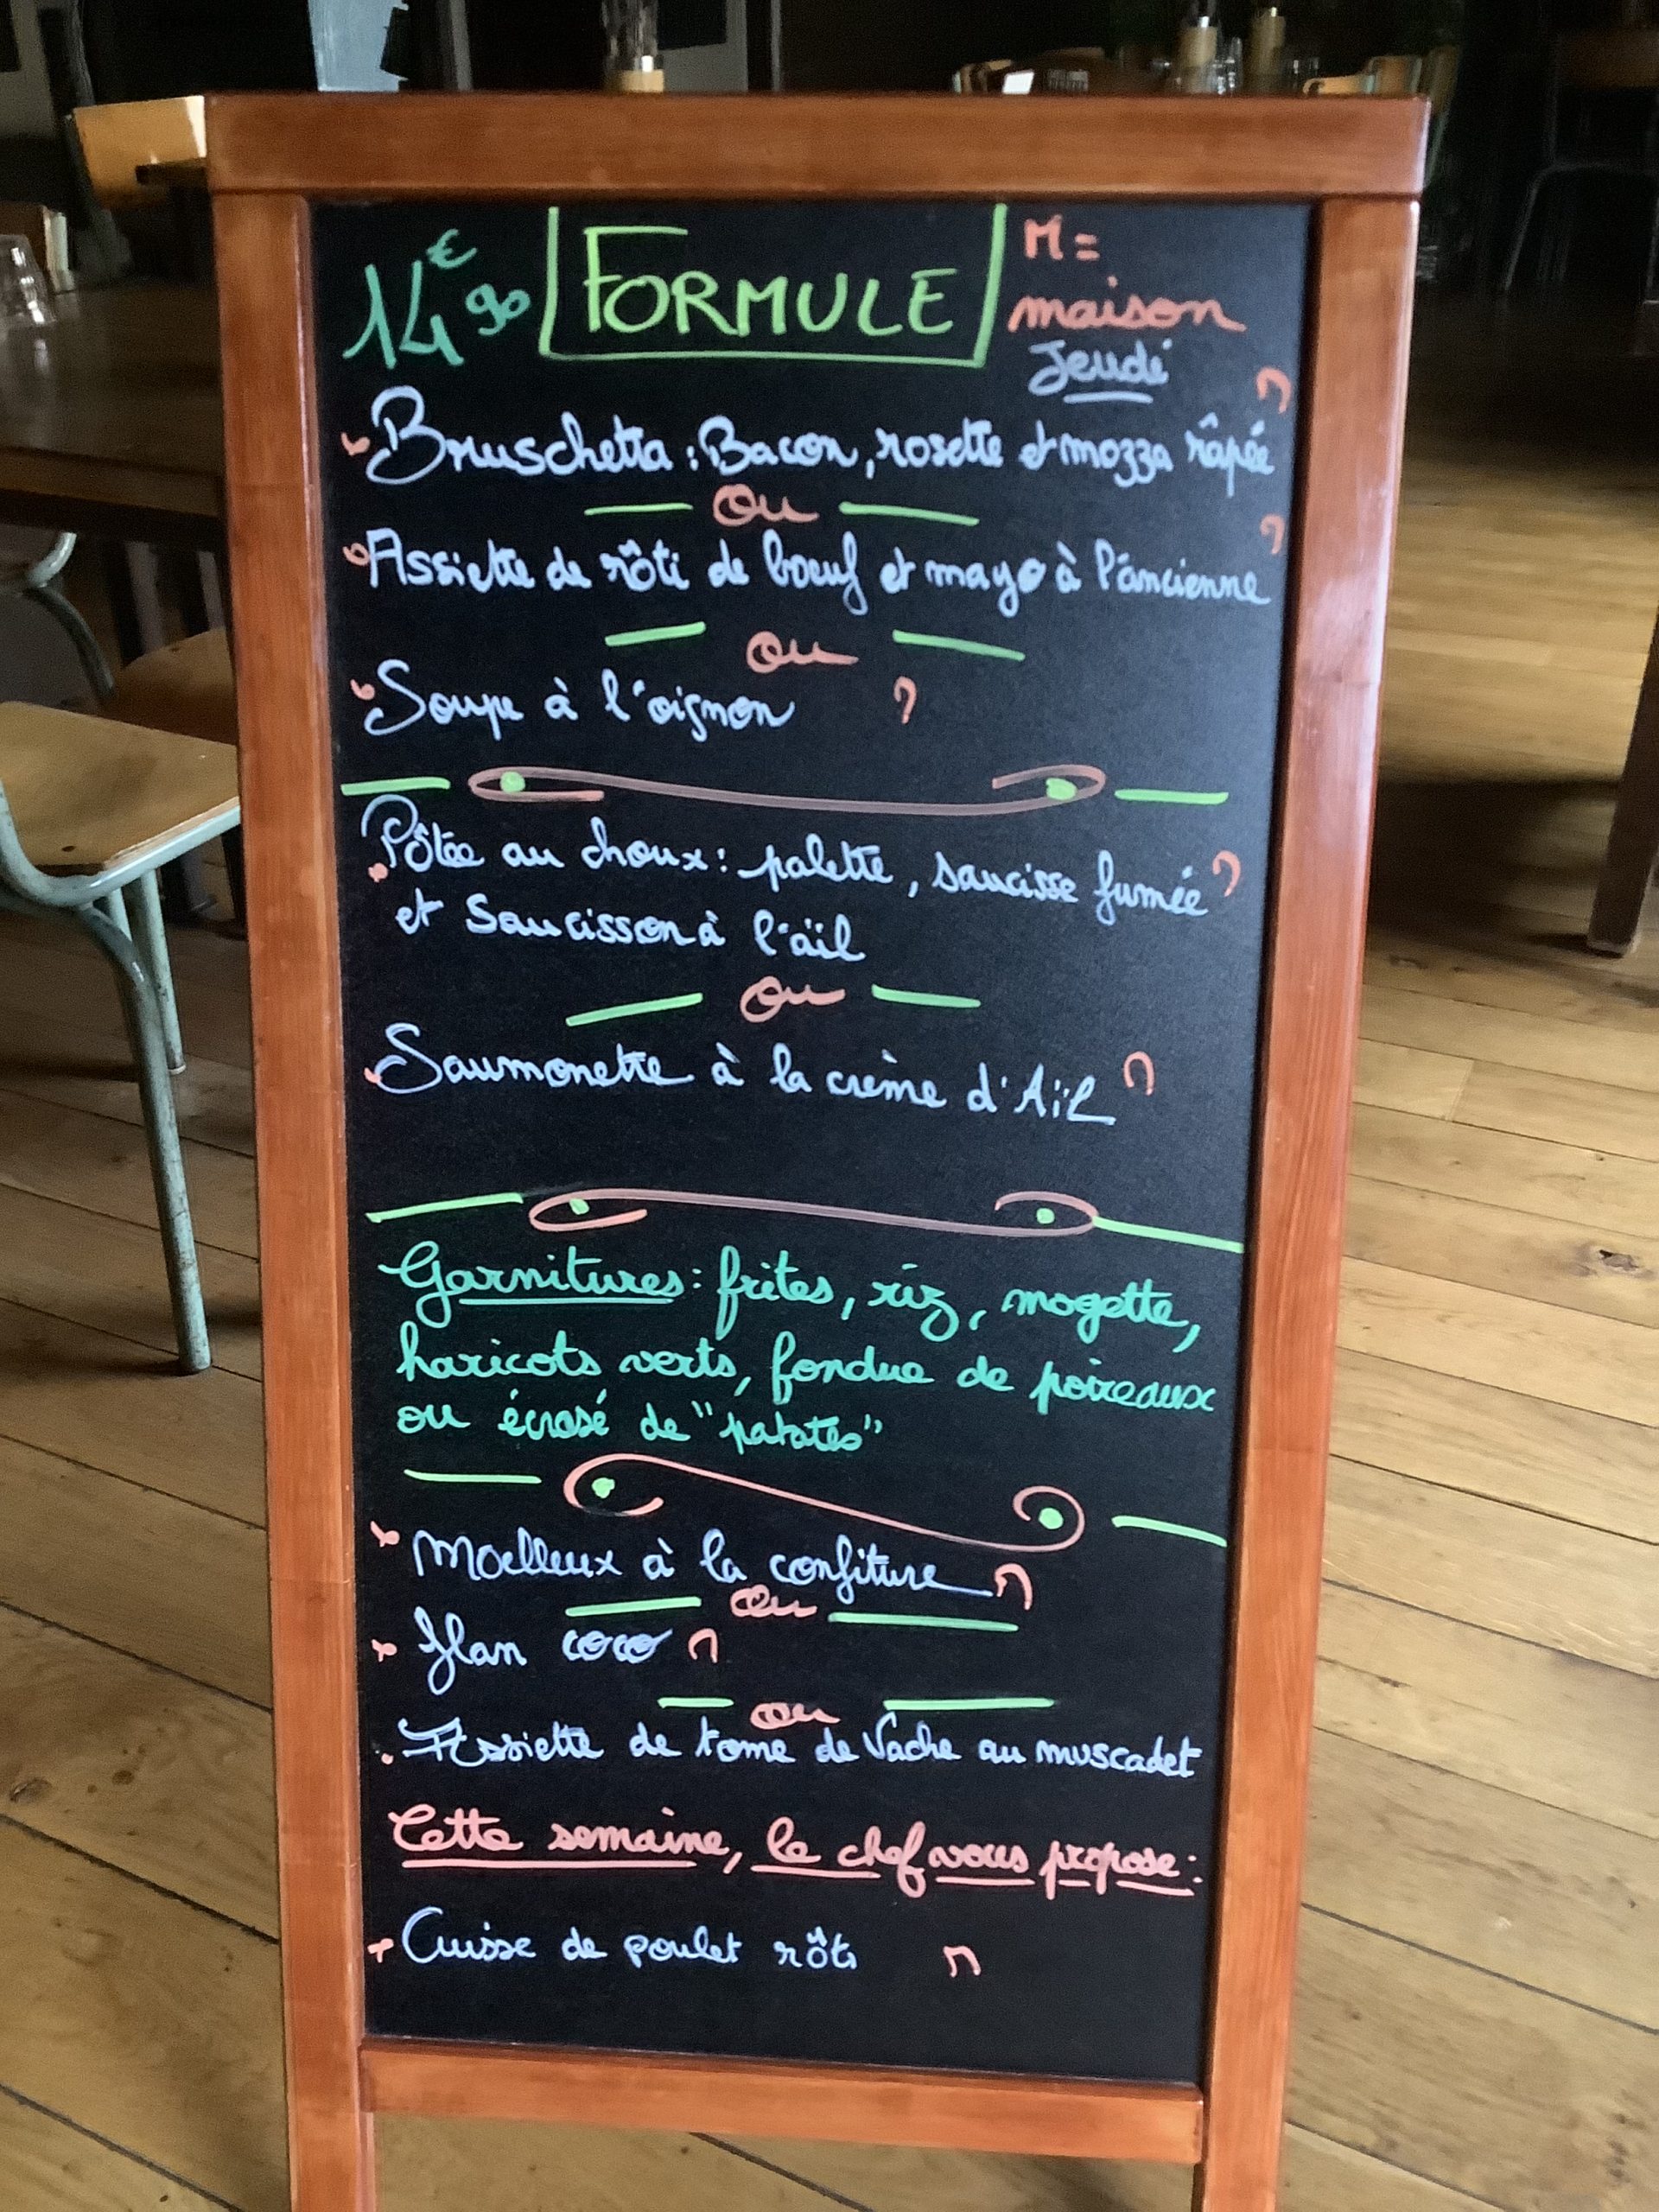 14€90 FORMULE M =
maison
Jeudi
Bruschetta : Bacon, rosette et mozza râpée M
ou
Assiette de rôti de boeuf et mayo à l'ancienne M
ou
Soupe à l'oignon M
Pôtée au choux : palette, saucisse fumée M
et Saucisson à l'aïl
ou
Saumonette à la crème d'Aïl M
Garnitures : frites, riz, mogette,
haricots verts, fondue de poireaux
ou écrasé de "patates"
Moelleux à la confiture M
ou
flan coco M
ou
Assiette de tome de Vache au muscadet
Cette semaine, le chef vous propose :
Cuisse de poulet rôti M